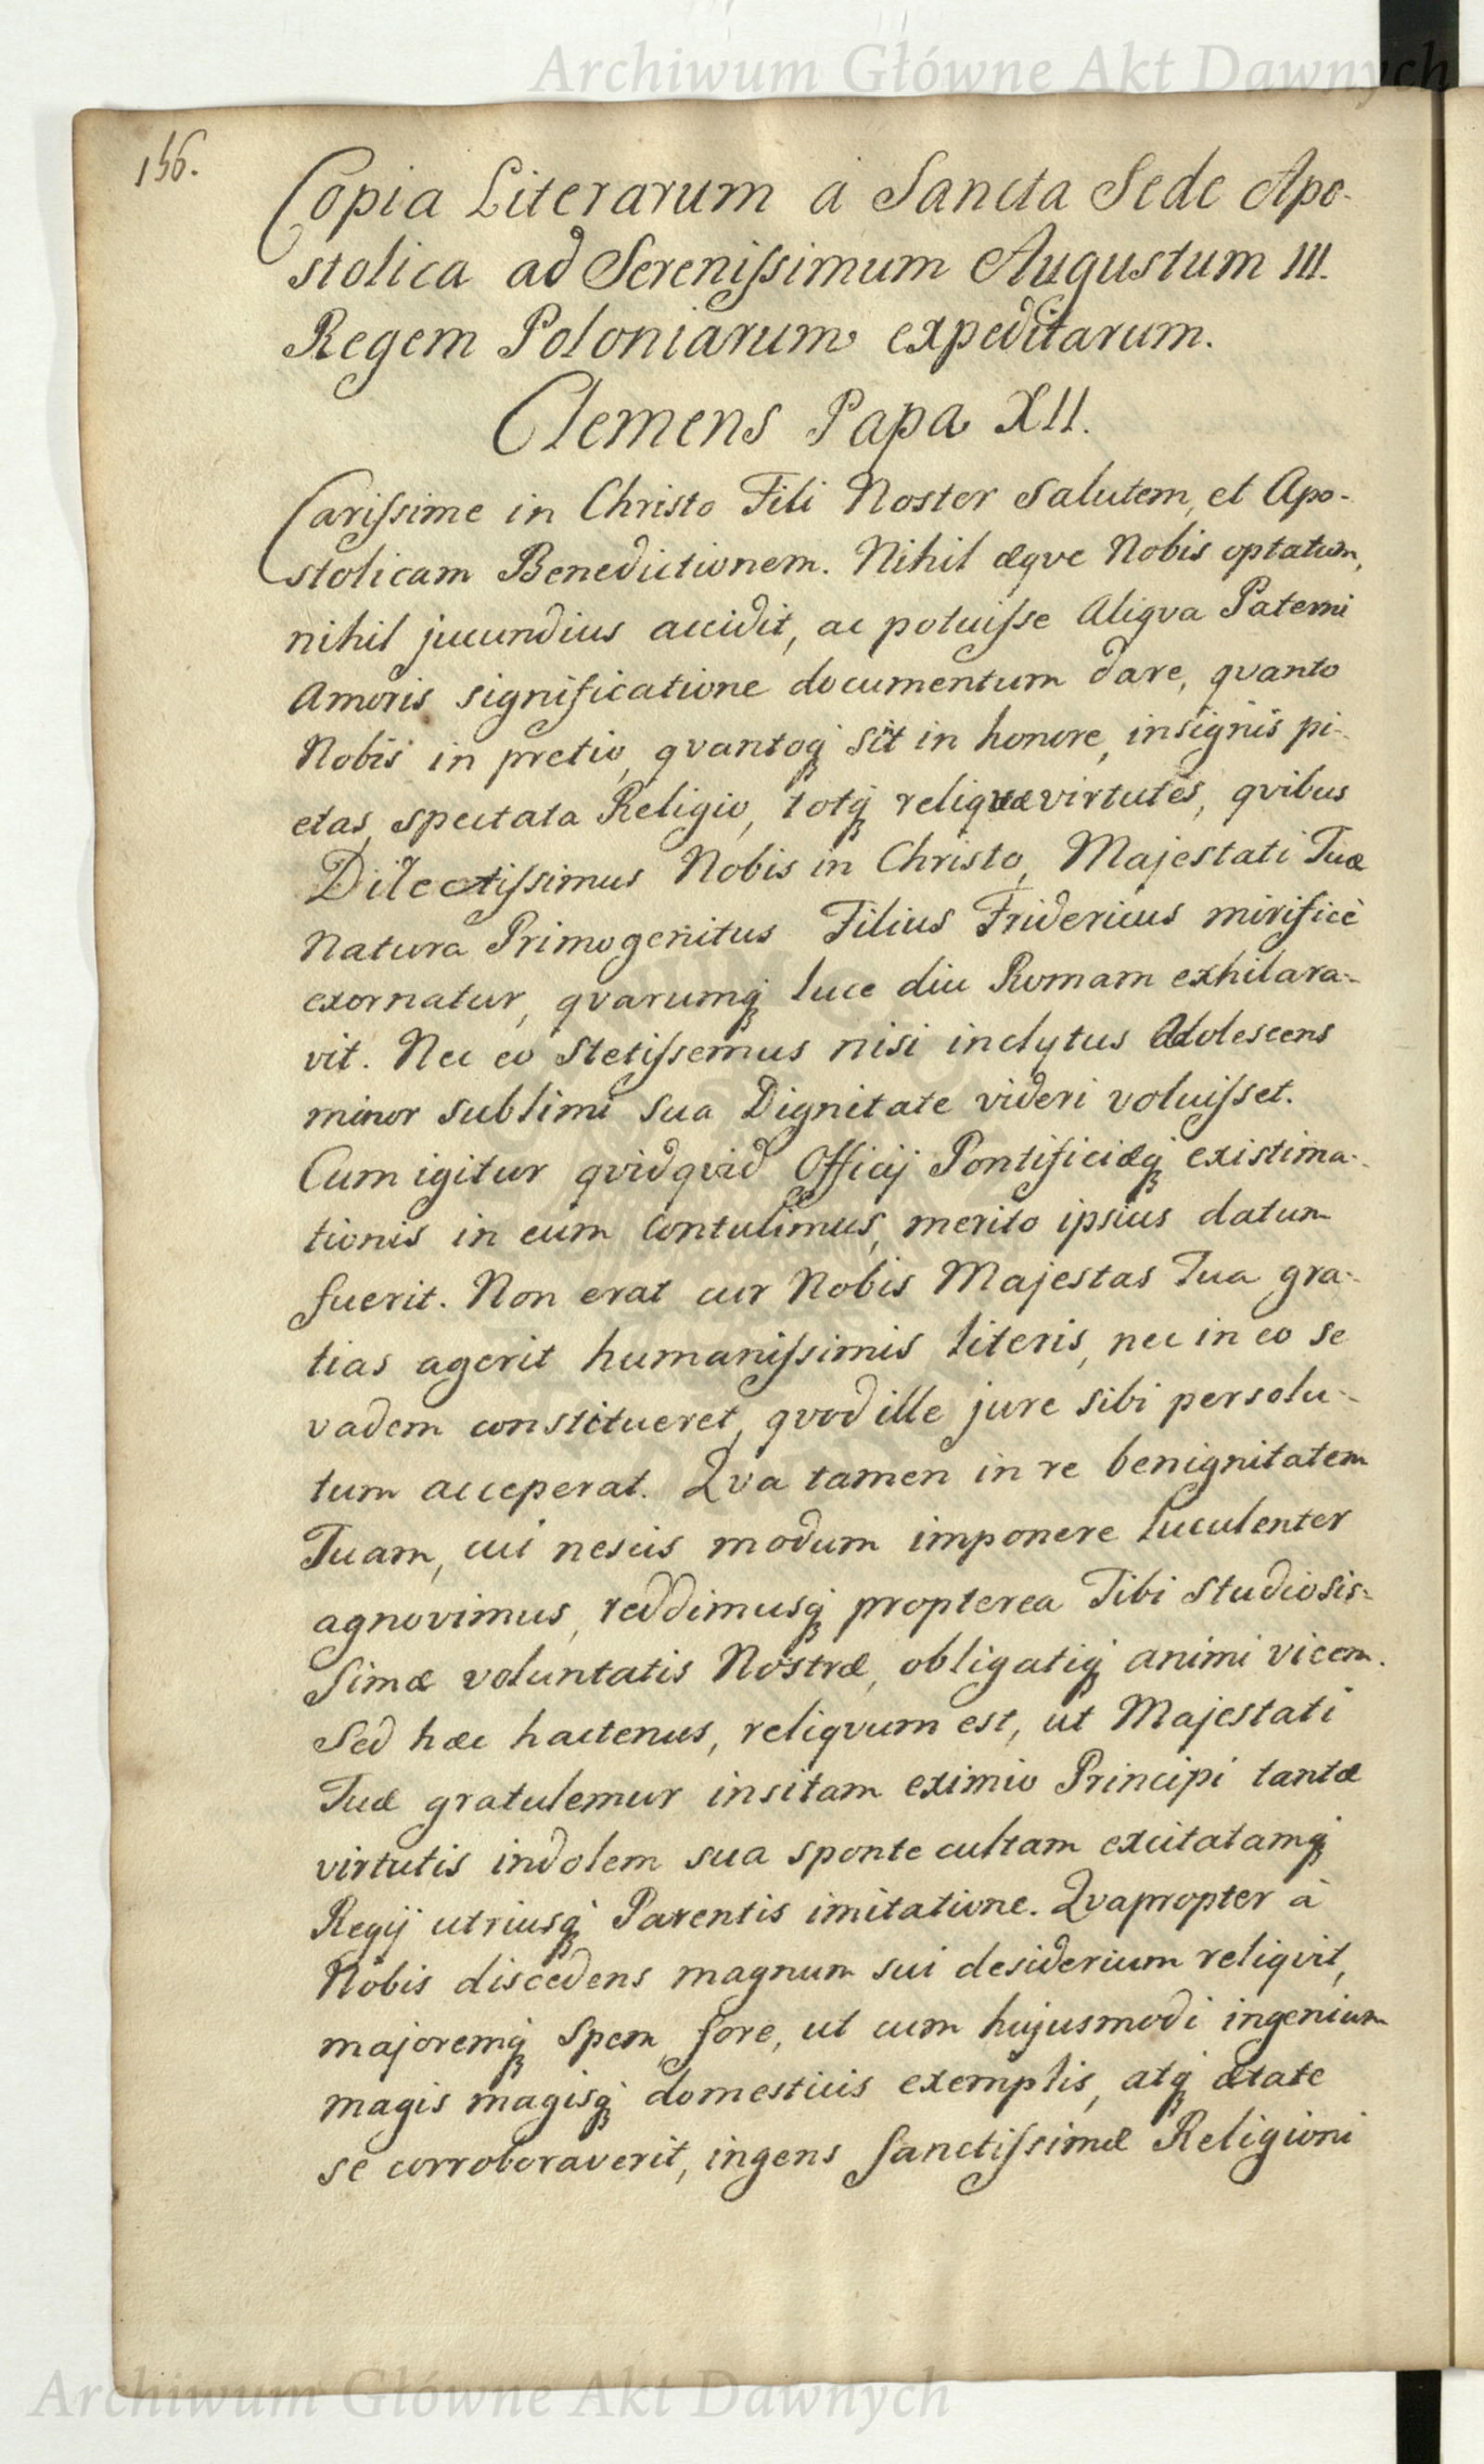 Archiwum Główne Akt Dawnych
156.
Copia Literarum a Sancta Sede Apo-
stolica ad Serenissimum Augustum III.
Regem Poloniarum expeditarum.
Clemens Papa XII.
Carissime in Christo Fili Noster Salutem, et Apo-
stolicam Benedictionem. Nihil æqve Nobis optatum,
nihil jucundius accidit, ac potuisse Aliqva Paterni
Amoris significatione documentum dare, qvanto
Nobis in pretio, qvantoq́ sit in honore, insignis pi-
etas, spectata Religio, totq́ reliqvæ virtutes, qvibus
Dilectissimus Nobis in Christo, Majestati Tuæ
Naturâ Primogenitus Filius Fridericus mirificè
exornatur, qvarumq́ luce diu Romam exhilara-
vit. Nec eo Stetissemus nisi inclytus Adolescens
minor sublimi sua Dignitate videri voluisset.
Cum igitur qvidqvid Officij Pontificiæq́ existima-
tionis in eum Contulimus, merito ipsius datum
fuerit. Non erat cur Nobis Majestas Tua gra-
tias agerit humanissimis literis, nec in eo se
vadem constitueret, qvod ille jure sibi persolu-
tum acceperat. Qva tamen in re benignitatem
Tuam, cui nescis modum imponere luculenter
agnovimus, reddimusq́ propterea Tibi Studiosis-
simæ voluntatis Nostræ, obligatiq́ animi vicem.
Sed hæc hactenus, reliqvum est, ut Majestati
Tuæ gratulemur insitam eximio Principi tantæ
virtutis indolem sua sponte cultam excitatamq́
Regij utriusq́ Parentis imitatione. Qvapropter à
Nobis discedens magnum sui desiderium reliqvit,
majoremq́ Spem, fore, ut cum hujusmodi ingenium
magis magisq́ domesticis exemplis, atq́ ætate
se corroboraverit, ingens Sanctissimæ Religioni
Archiwum Główne Akt Dawnych